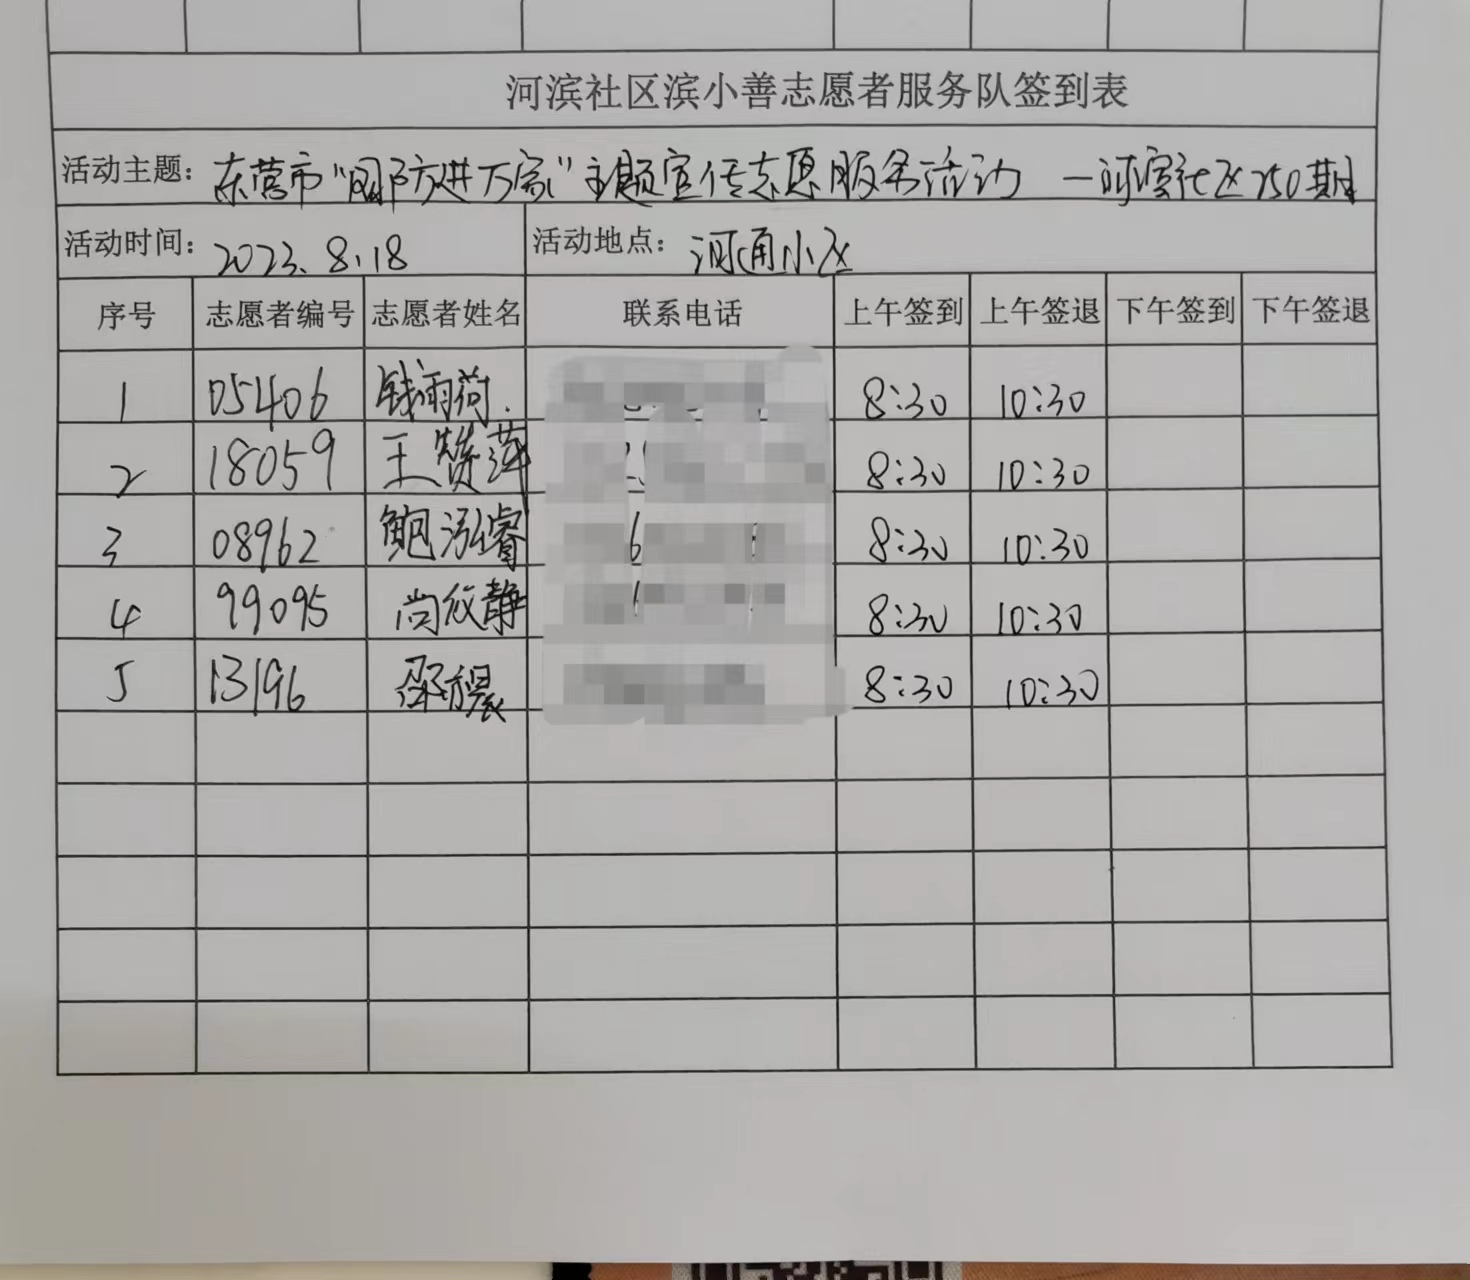 河滨社区滨小善志愿者服务队签到表
活动主题：东营市“国防进万家”主题宣传志愿服务活动 —河滨社区250期
活动时间：2023.8.18 活动地点：河通小区
序号 志愿者编号 志愿者姓名 联系电话 上午签到 上午签退 下午签到 下午签退
1 05406 钱雨荷 8:30 10:30
2 18059 王赞萍 8:30 10:30
3 08962 鲍泓睿 8:30 10:30
4 99095 尚纹静 8:30 10:30
5 13196 8:30 10:30